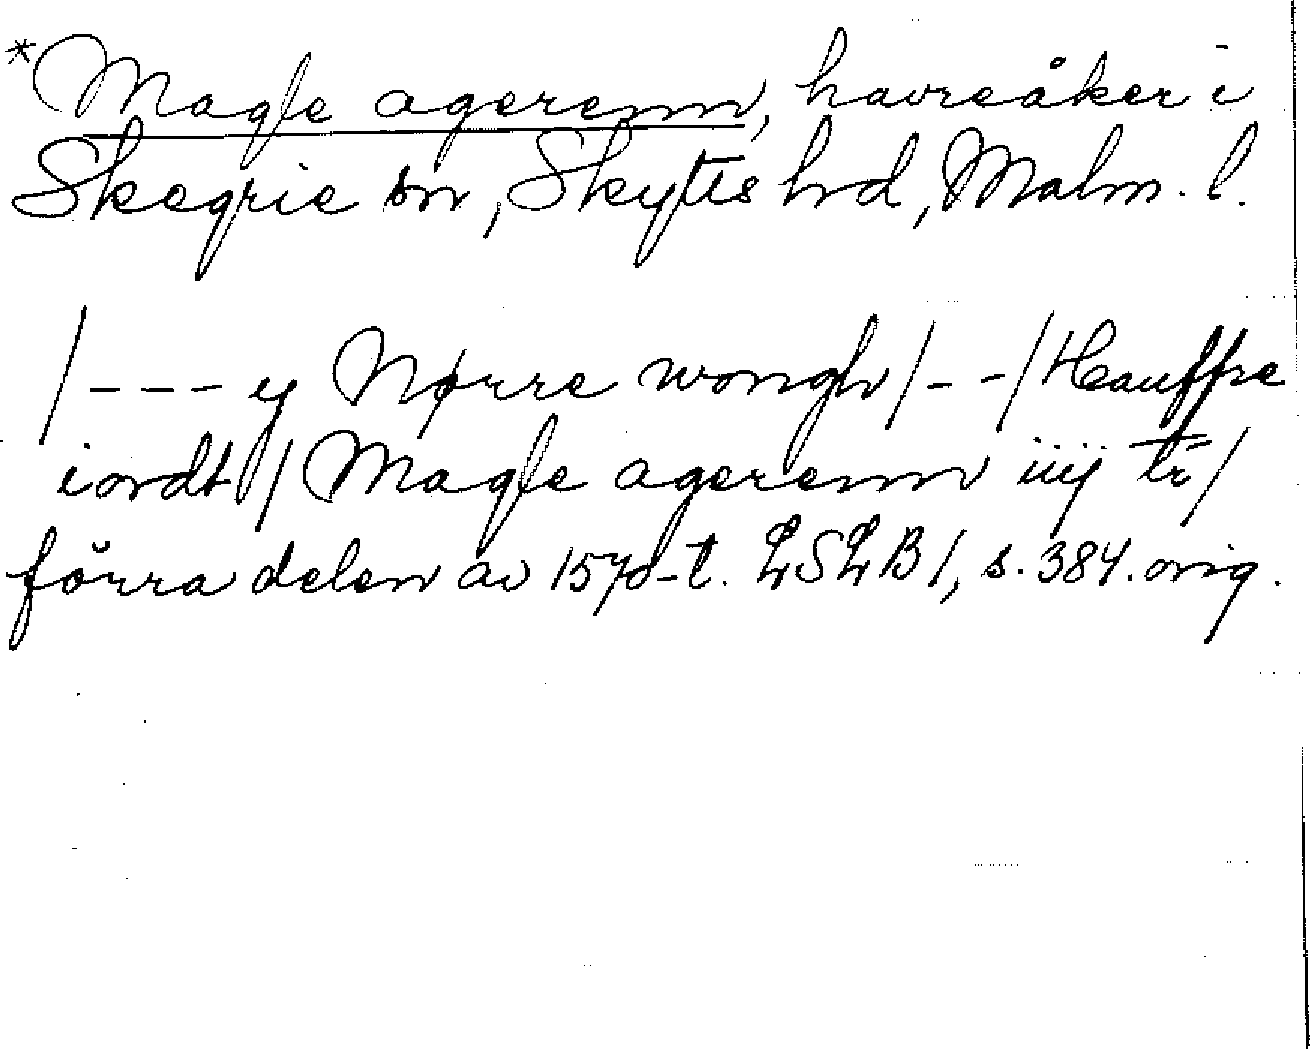 *Magle agerenn, havreåker i
Skegrie sn, Skytts hrd, Malm. l.
/--- y Nørre wongh/--/Hauffre
iordt // Magle agerenn iiij tr/
förra delen av 1570-t. LSLB 1, s. 384. orig.